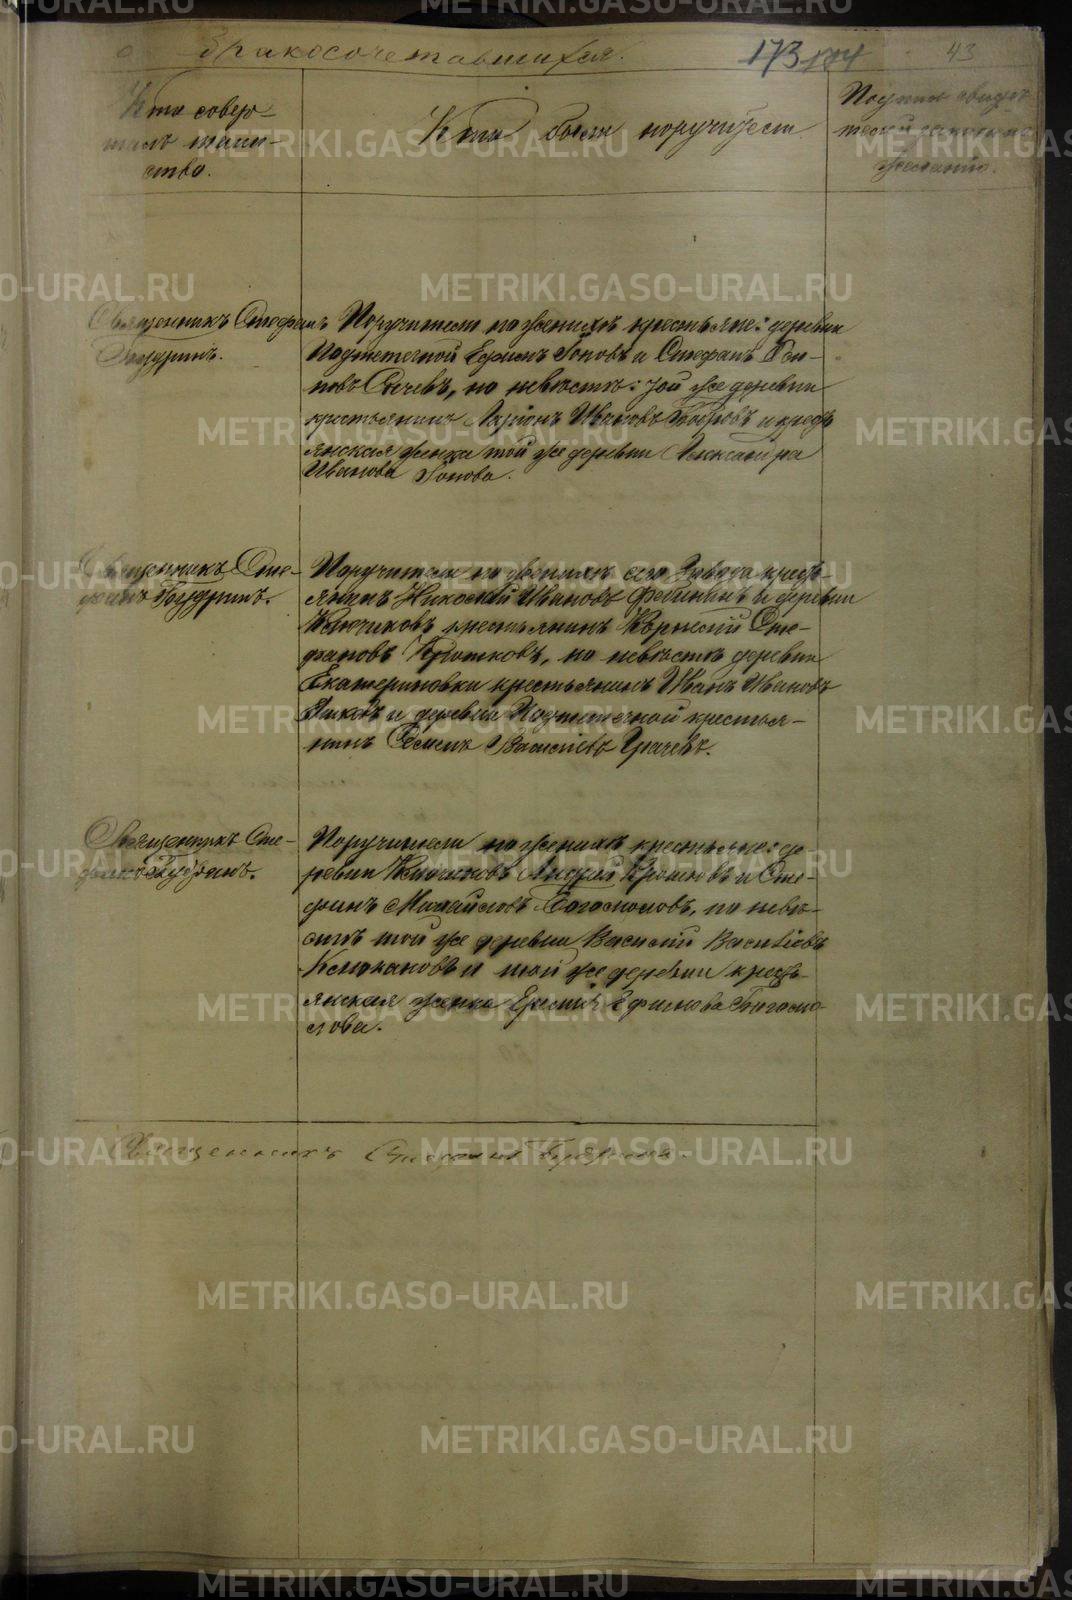 о бракосочетавшихся.
173 174
43
Кто совер-
шалъ таин-
ство.
Кто были поручители
Подпись свидѣ-
телей записи по
желанію.
Священникъ Стефанъ
Поручители по женихѣ крестьяне: деревни
Подметечной Ефимъ Поповъ и Стефанъ
Сычевъ, по невѣстѣ: той же деревни
крестьянинъ Ларіонъ Ивановъ и кресть-
янская женка той же деревни Александра
Иванова Попова.
Священникъ Сте-
фанъ
Поручители по женихѣ сего Завода кресть-
янинъ Николай Ивановъ и деревни
Ключиковъ крестьянинъ Корнилій Сте-
фановъ Крошковъ, по невѣстѣ деревни
Екатериновки крестьянинъ Иванъ Ивановъ
и деревни Подметечной крестья-
нинъ Семенъ Васильевъ Грачевъ.
Священникъ Сте-
фанъ
Поручители по женихѣ крестьяне: де-
ревни Ключиковъ Андрей Крошковъ и Сте-
фанъ Михайловъ Богомоловъ, по невѣ-
стѣ той же деревни Василій Васильевъ
и той же деревни кресть-
янская женка Ефимова Богомо-
лова.
Священникъ Стефанъ
METRIKI.GASO-URAL.RU